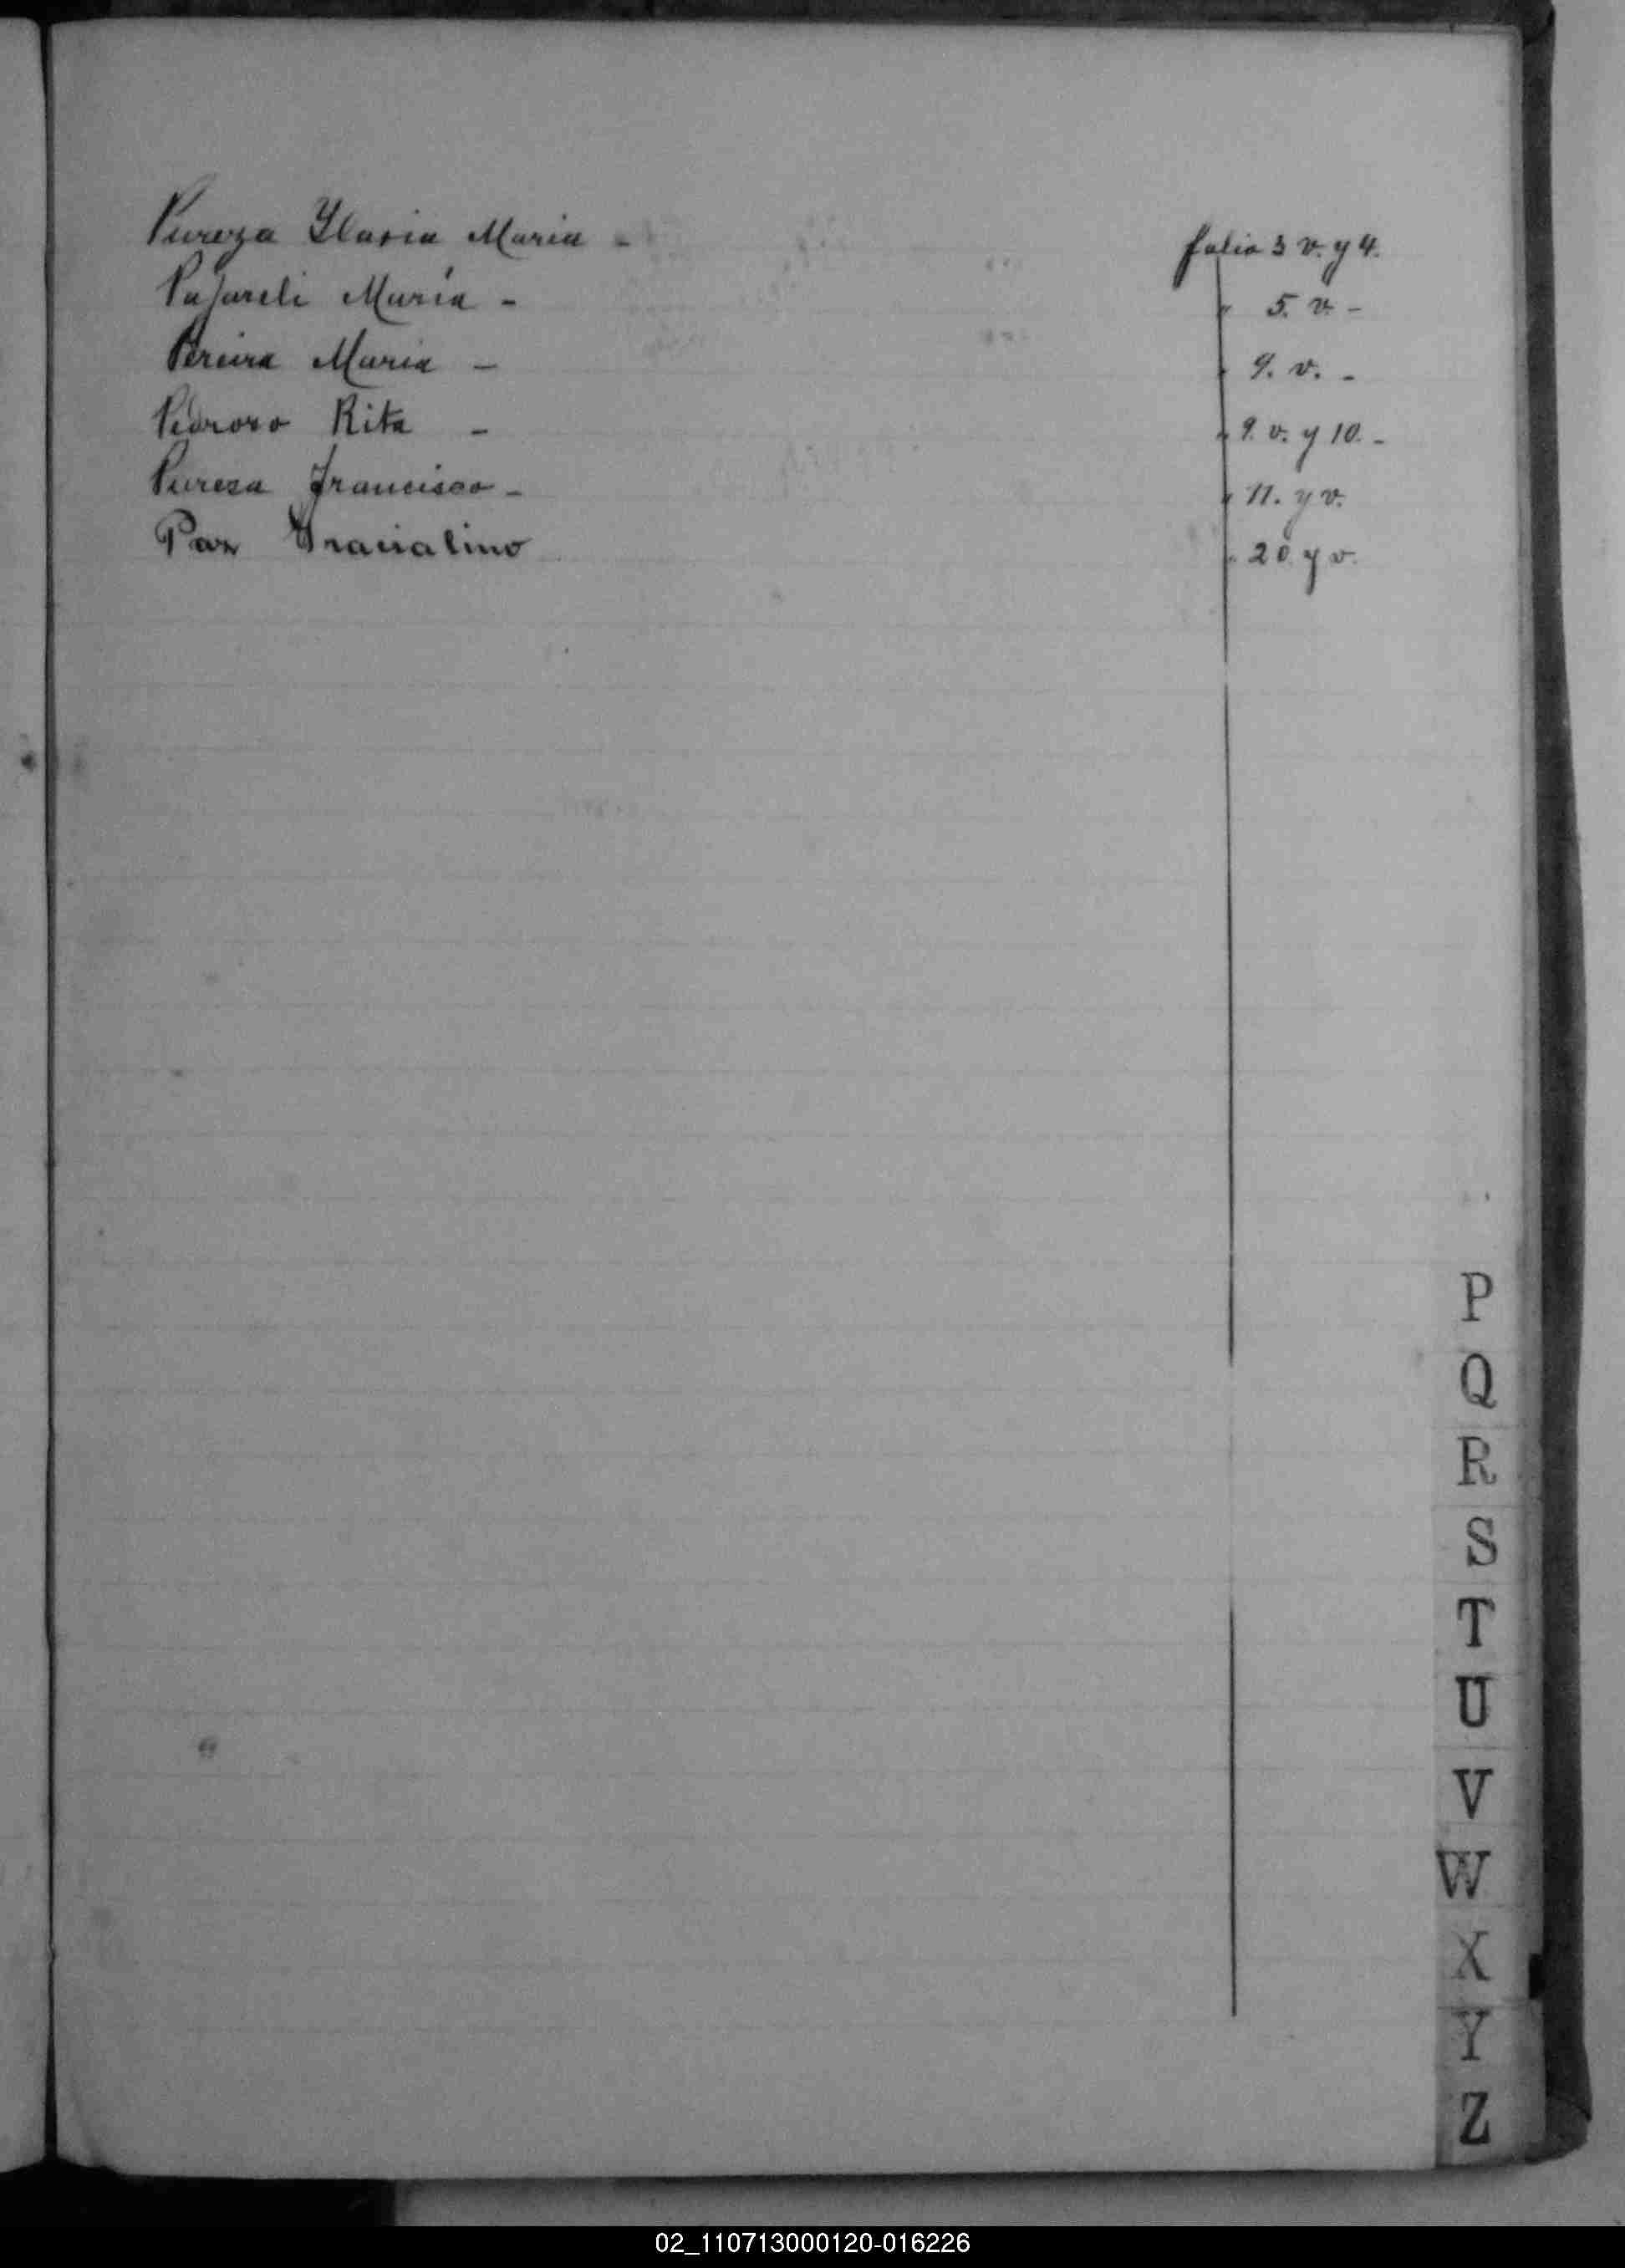 Pureza Ylaria Maria - folio 3 v. y 4.
Pajareli María - " 5. v. -
Pereira Maria - " 9. v. -
Pedroso Rita - " 9. v. y 10. -
Pureza Francisco - " 11. y v.
Paz Gracialino " 20 y v.
P
Q
R
S
T
U
V
W
X
Y
Z
02_110713000120-016226